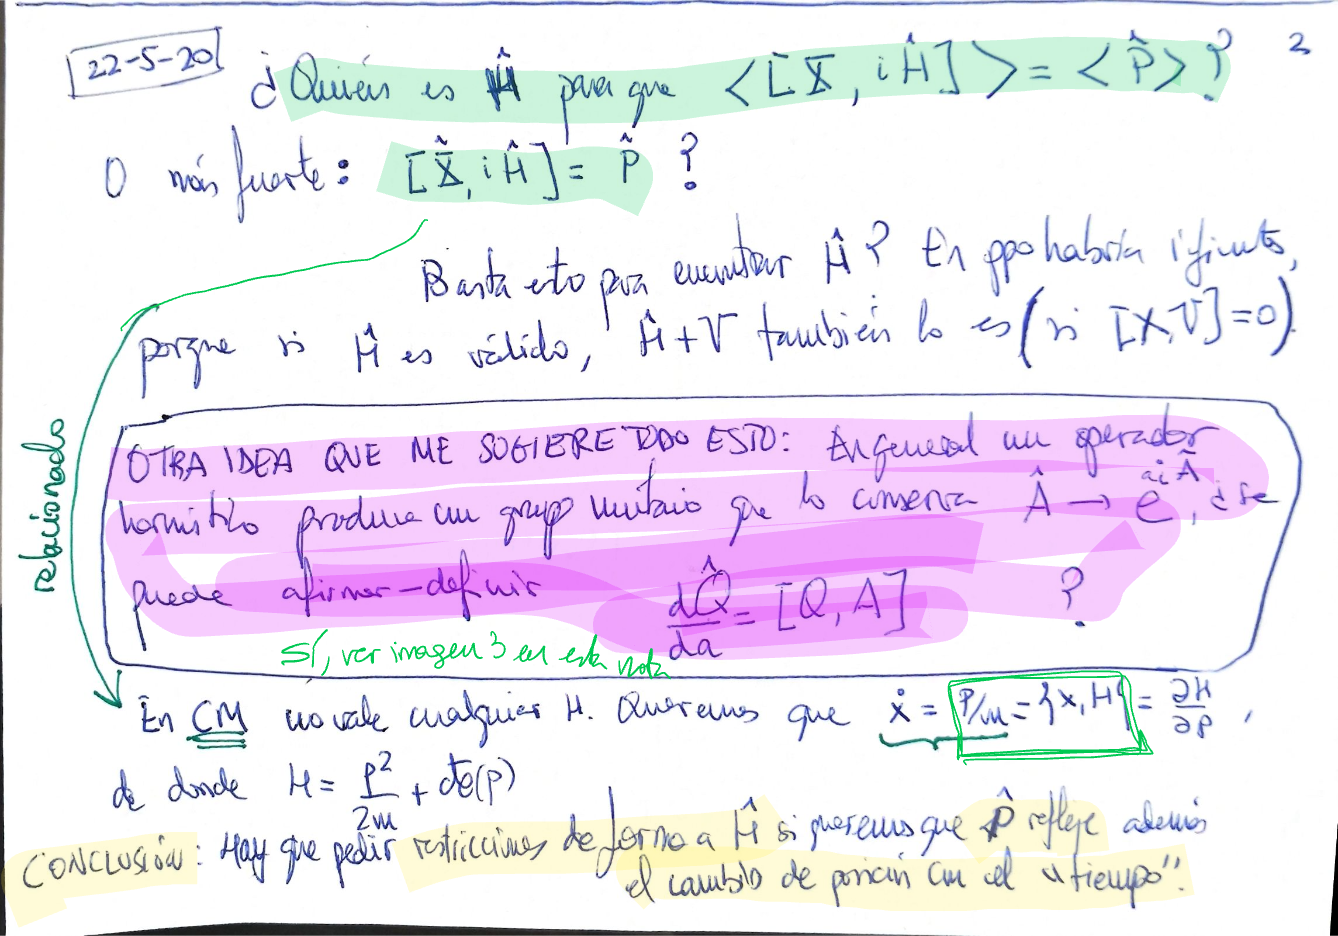 22-5-20
2
¿Quién es Ĥ para que <[X̂, iĤ]> = <P̂>?
O más fuerte: [X̂, iĤ] = P̂ ?
Basta esto para encontrar Ĥ? En ppo habría ifinitos,
porque si Ĥ es válido, Ĥ+V también lo es (si [X,V]=0).
relacionado
OTRA IDEA QUE ME SUGIERE TODO ESTO: En general un operador
hermítico produce un grupo unitario que lo conserva Â → e^{aiÂ}, ¿se
puede afirmar-definir dQ̂/da = [Q, A] ?
SÍ, ver imagen 3 en esta nota
En CM no vale cualquier H. Queremos que ẋ = P/m = {x, H} = ∂H/∂P ,
de donde H = P²/2m + cte(p)
CONCLUSIÓN: Hay que pedir restricciones de forma a Ĥ si queremos que P̂ refleje además
el cambio de posición con el "tiempo".